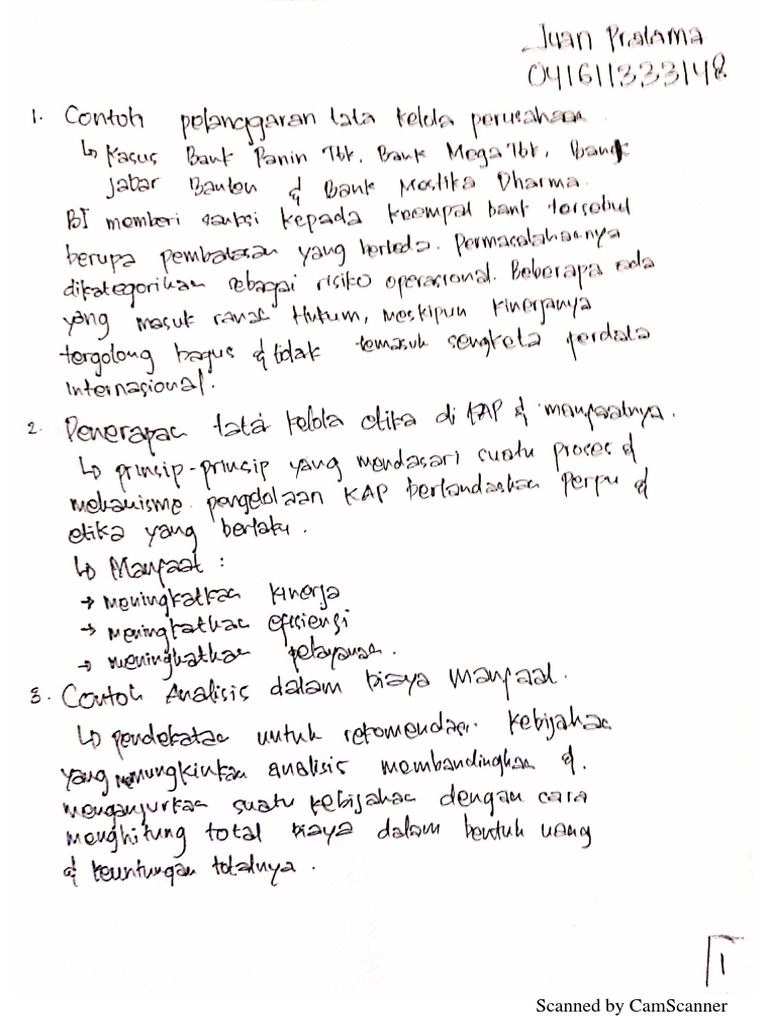 Juan Pratama
041611333148
1. Contoh pelanggaran tata kelola perusahaan.
↳ Kasus Bank Panin Tbk, Bank Mega Tbk, Bank
Jabar Banten & Bank Mestika Dharma.
BI memberi sanksi kepada keempat bank tersebut
berupa pembatasan yang berbeda. Permasalahannya
dikategorikan sebagai risiko operasional. Beberapa ada
yang masuk ranah Hukum, meskipun kinerjanya
tergolong bagus & tidak temasuk sengketa perdata
Internasional.
2. Penerapan tata kelola etika di KAP & manfaatnya.
↳ prinsip-prinsip yang mendasari suatu proses &
mekanisme pengelolaan KAP berlandaskan Perpu &
etika yang berlaku.
↳ Manfaat :
→ meningkatkan kinerja
→ meningkatkan efisiensi
→ meningkatkan pelayanan.
3. Contoh Analisis dalam biaya manfaat.
↳ pendekatan untuk rekomendasi kebijakan
yang memungkinkan analisis membandingkan &
menganjurkan suatu kebijakan dengan cara
menghitung total biaya dalam bentuk uang
& keuntungan totalnya.
1
Scanned by CamScanner